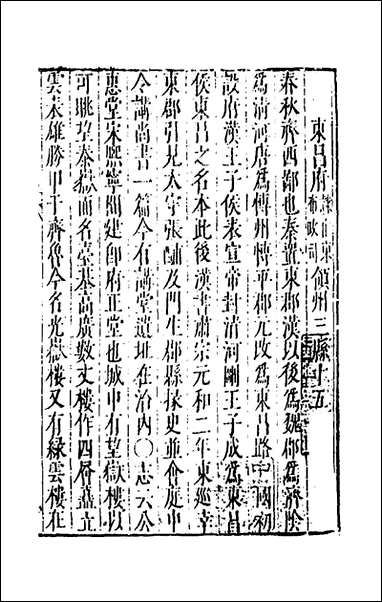 東昌府隸山東布政司領州三縣十五
春秋齊西鄙也秦置東郡漢以後為魏郡為濟陰
為清河唐為博州博平郡元改為東昌路中國初
設府漢王子侯表宣帝封清河剛王子成為東昌
侯東昌之名本此後漢書肅宗元和二年東巡幸
東郡引見太守張酺及門生郡縣掾史並會庭中
令講尚書一篇今有講堂遺址在治內〇志云公
惠堂宋熙寧間建即府正堂也城中有望嶽樓以
可眺望泰嶽而名臺基高廣數丈樓作四層矗立
雲表雄勝甲于齊魯今名光嶽樓又有綠雲樓在